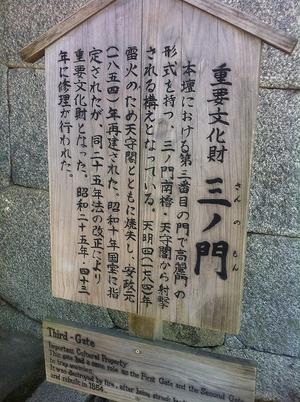 重要文化財
三ノ門
さんのもん
本壇における第三番目の門で高麗門の
形式を持つ、三ノ門南櫓・天守閣から射撃
される構えとなっている。天明四(一七八四)年
雷火のため天守閣とともに焼失し、安政元
(一八五四)年再建された。昭和十年国宝に指
定されたが、同二十五年法の改正により
重要文化財となった。昭和二十五年・四十三
年に修理が行われた。
Third-Gate
Important Cultural Property
This gate had a same role as the First Gate and the Second Gate
in true meaning.
It was destroyed by fire, after being struck
and rebuilt in 1854.